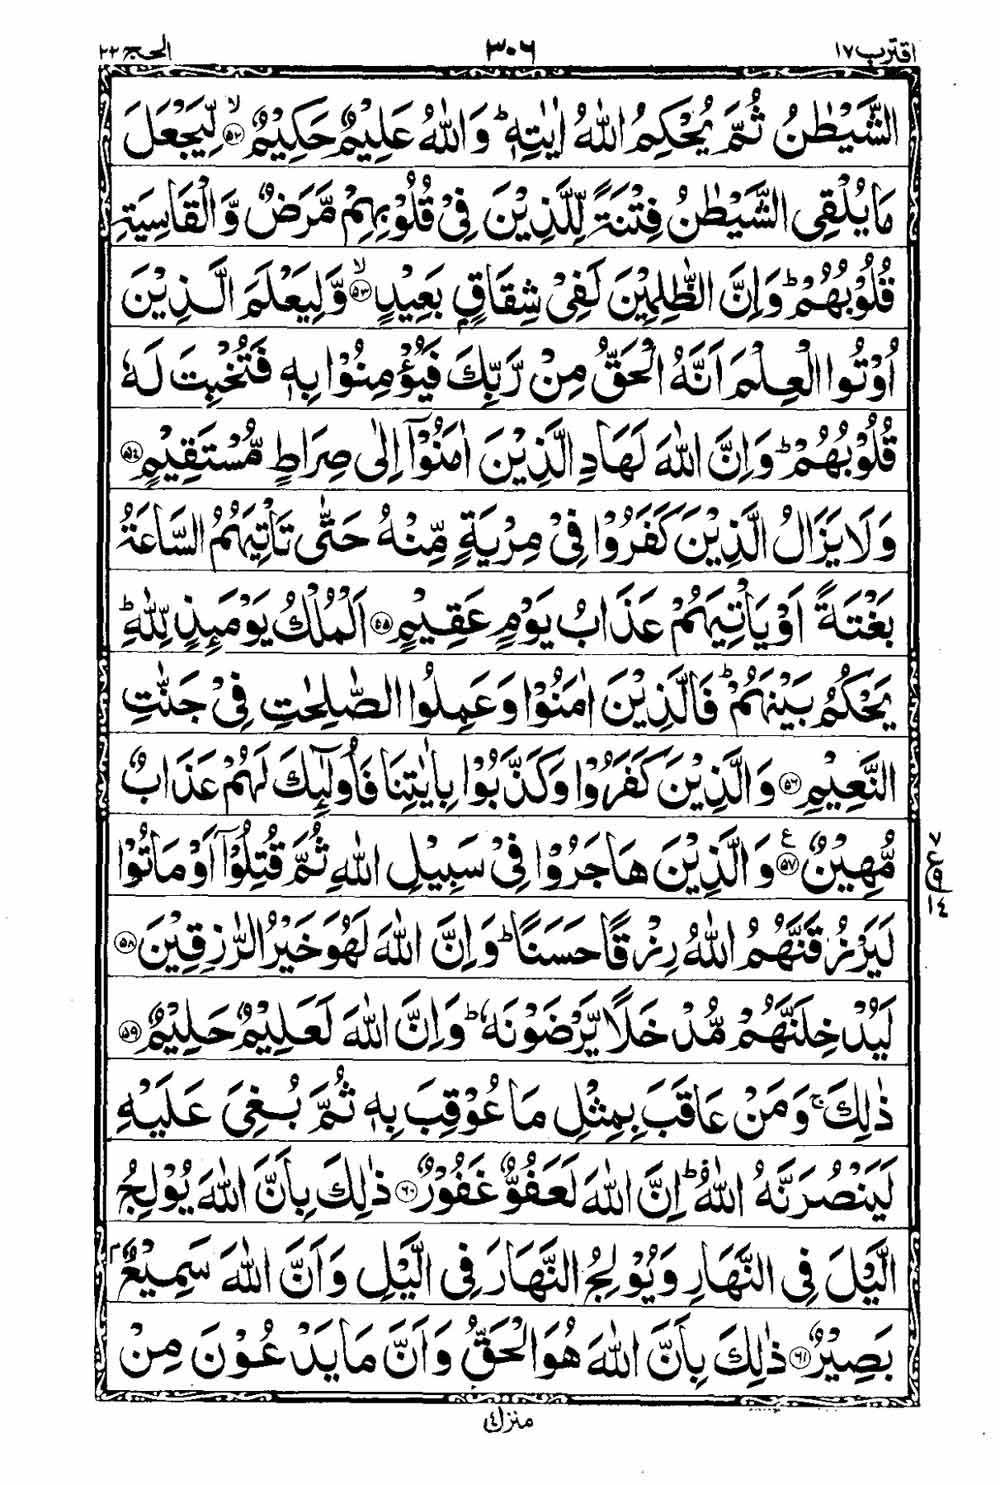 اقترب ١٧ ٣٠٦ الحج ٢٢
الشَّيْطٰنُ ثُمَّ يُحْكِمُ اللّٰهُ اٰيٰتِهٖ ؕ وَاللّٰهُ عَلِيْمٌ حَكِيْمٌ ۙ‏﴿۵۲﴾ لِّيَجْعَلَ
مَا يُلْقِى الشَّيْطٰنُ فِتْنَةً لِّلَّذِيْنَ فِىْ قُلُوْبِهِمْ مَّرَضٌ وَّالْقَاسِيَةِ
قُلُوْبُهُمْ ؕ وَاِنَّ الظّٰلِمِيْنَ لَفِىْ شِقَاقٍۭ بَعِيْدٍ ۙ‏﴿۵۳﴾ وَّلِيَعْلَمَ الَّذِيْنَ
اُوْتُوا الْعِلْمَ اَنَّهُ الْحَقُّ مِنْ رَّبِّكَ فَيُؤْمِنُوْا بِهٖ فَتُخْبِتَ لَهٗ
قُلُوْبُهُمْ ؕ وَاِنَّ اللّٰهَ لَهَادِ الَّذِيْنَ اٰمَنُوْۤا اِلٰى صِرَاطٍ مُّسْتَقِيْمٍ ﴿۵۴﴾
وَلَا يَزَالُ الَّذِيْنَ كَفَرُوْا فِىْ مِرْيَةٍ مِّنْهُ حَتّٰى تَاْتِيَهُمُ السَّاعَةُ
بَغْتَةً اَوْ يَاْتِيَهُمْ عَذَابُ يَوْمٍ عَقِيْمٍ ﴿۵۵﴾ اَلْمُلْكُ يَوْمَئِذٍ لِّلّٰهِ ؕ
يَحْكُمُ بَيْنَهُمْ ؕ فَالَّذِيْنَ اٰمَنُوْا وَعَمِلُوا الصّٰلِحٰتِ فِىْ جَنّٰتِ
النَّعِيْمِ ﴿۵۶﴾ وَالَّذِيْنَ كَفَرُوْا وَكَذَّبُوْا بِاٰيٰتِنَا فَاُولٰٓئِكَ لَهُمْ عَذَابٌ
مُّهِيْنٌ ﴿۵۷﴾ ع وَالَّذِيْنَ هَاجَرُوْا فِىْ سَبِيْلِ اللّٰهِ ثُمَّ قُتِلُوْۤا اَوْ مَاتُوْا
لَيَرْزُقَنَّهُمُ اللّٰهُ رِزْقًا حَسَنًا ؕ وَاِنَّ اللّٰهَ لَهُوَ خَيْرُ الرّٰزِقِيْنَ ﴿۵۸﴾
لَيُدْخِلَنَّهُمْ مُّدْخَلًا يَّرْضَوْنَهٗ ؕ وَاِنَّ اللّٰهَ لَعَلِيْمٌ حَلِيْمٌ ﴿۵۹﴾
ذٰلِكَ ۚ وَمَنْ عَاقَبَ بِمِثْلِ مَا عُوْقِبَ بِهٖ ثُمَّ بُغِىَ عَلَيْهِ
لَيَنْصُرَنَّهُ اللّٰهُ ؕ اِنَّ اللّٰهَ لَعَفُوٌّ غَفُوْرٌ ﴿۶۰﴾ ذٰلِكَ بِاَنَّ اللّٰهَ يُوْلِجُ
الَّيْلَ فِى النَّهَارِ وَيُوْلِجُ النَّهَارَ فِى الَّيْلِ وَاَنَّ اللّٰهَ سَمِيْعٌۢ
بَصِيْرٌ ﴿۶۱﴾ ذٰلِكَ بِاَنَّ اللّٰهَ هُوَ الْحَقُّ وَاَنَّ مَا يَدْعُوْنَ مِنْ
منزل ٤